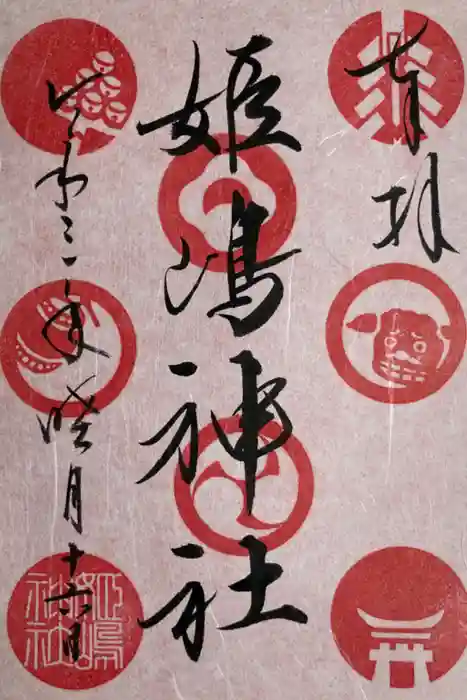 奉拝
姫嶋神社
令和三年睦月十六日
姫嶋
神社